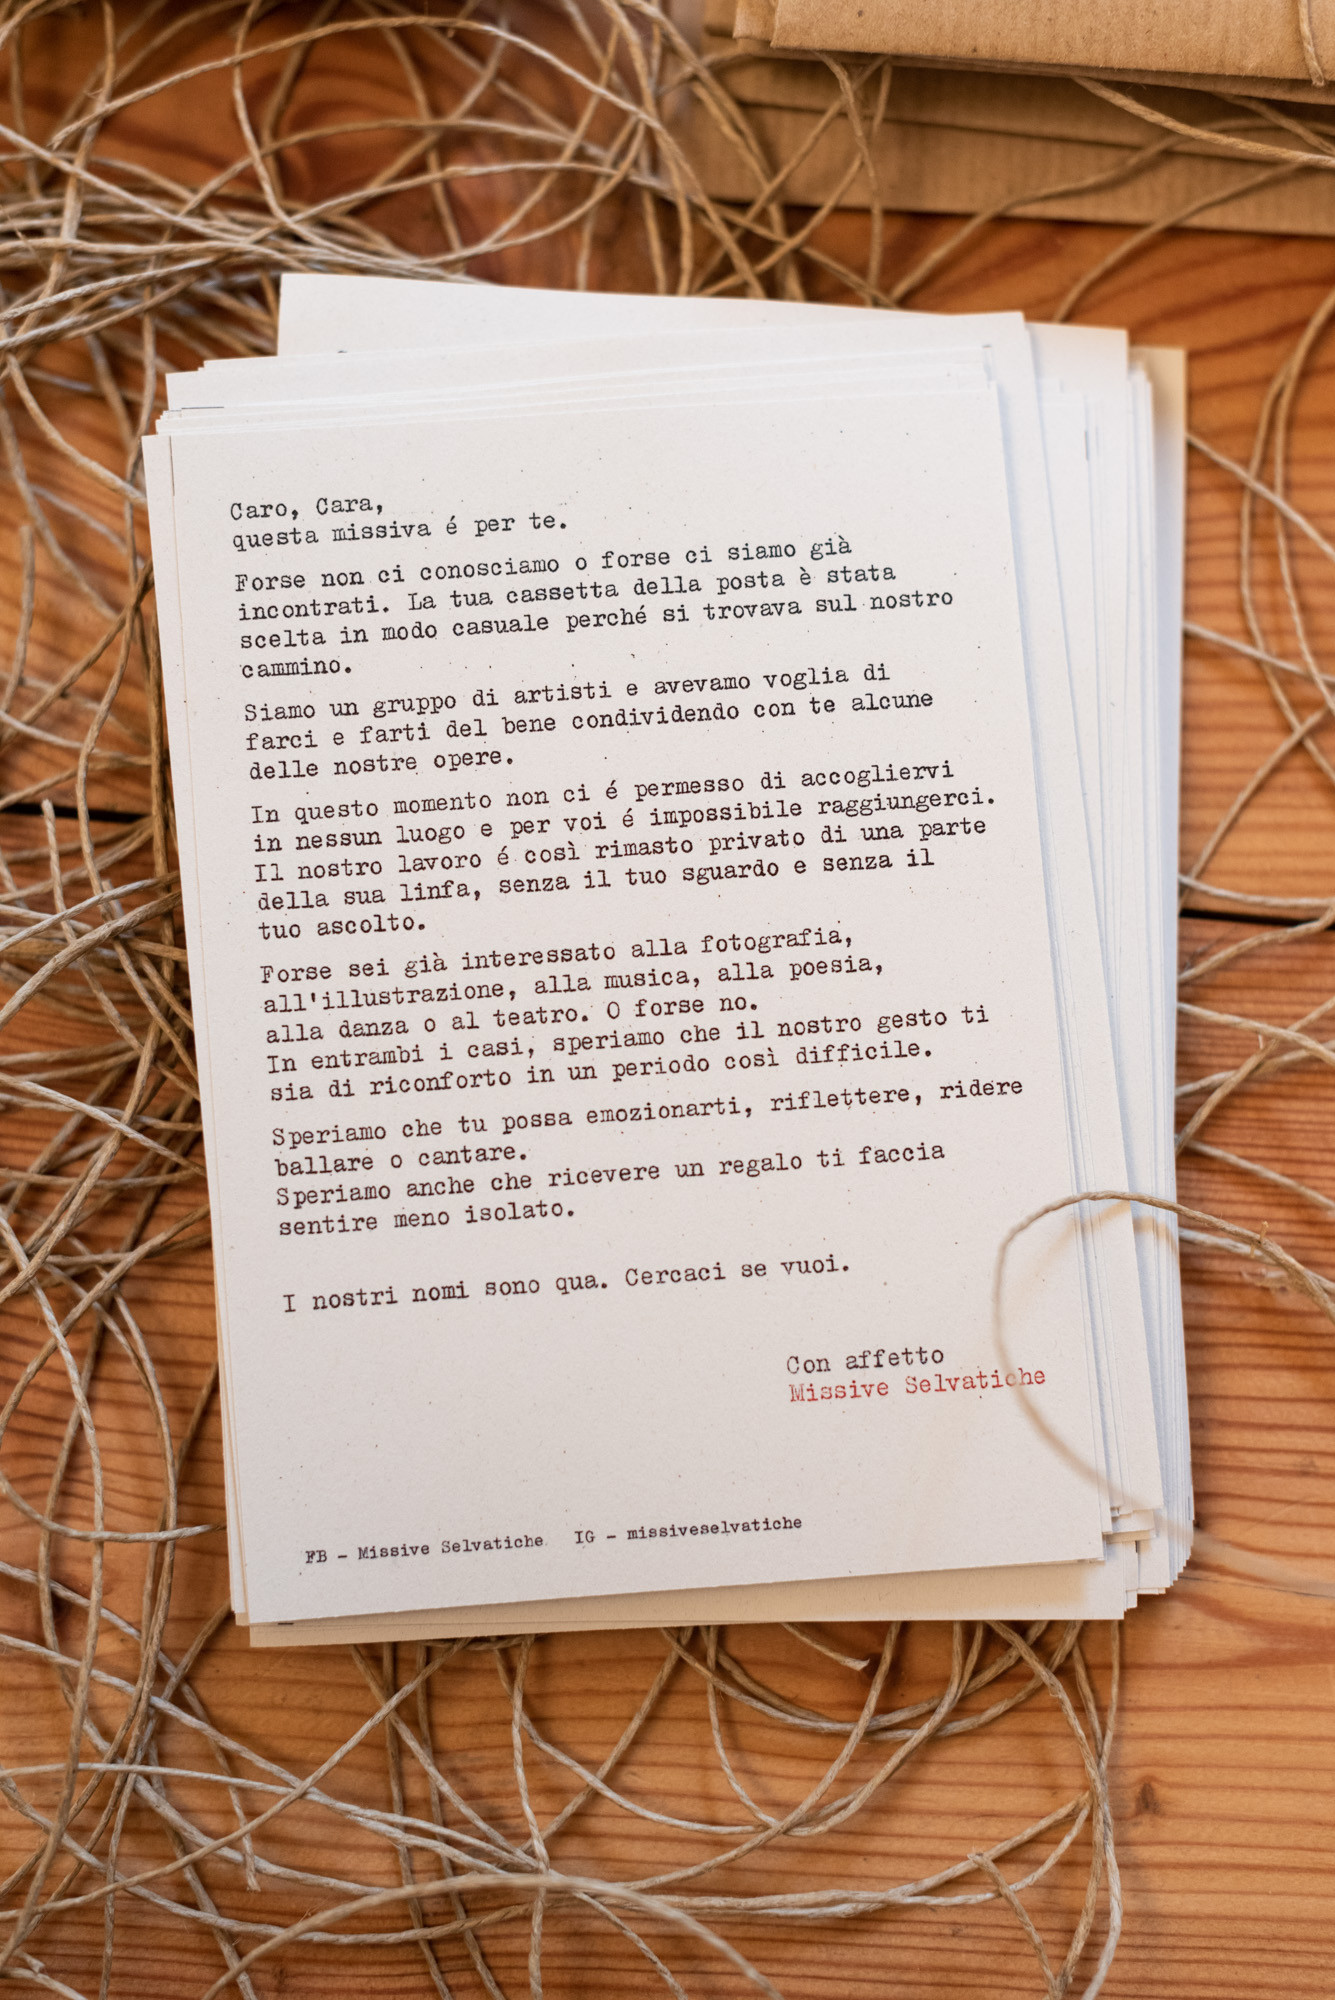 Caro, Cara,
questa missiva é per te.
Forse non ci conosciamo o forse ci siamo già
incontrati. La tua cassetta della posta è stata
scelta in modo casuale perché si trovava sul nostro
cammino.
Siamo un gruppo di artisti e avevamo voglia di
farci e farti del bene condividendo con te alcune
delle nostre opere.
In questo momento non ci é permesso di accogliervi
in nessun luogo e per voi é impossibile raggiungerci.
Il nostro lavoro é così rimasto privato di una parte
della sua linfa, senza il tuo sguardo e senza il
tuo ascolto.
Forse sei già interessato alla fotografia,
all'illustrazione, alla musica, alla poesia,
alla danza o al teatro. O forse no.
In entrambi i casi, speriamo che il nostro gesto ti
sia di riconforto in un periodo così difficile.
Speriamo che tu possa emozionarti, riflettere, ridere
ballare o cantare.
Speriamo anche che ricevere un regalo ti faccia
sentire meno isolato.
I nostri nomi sono qua. Cercaci se vuoi.
Con affetto
Missive Selvatiche
FB - Missive Selvatiche IG - missiveselvatiche